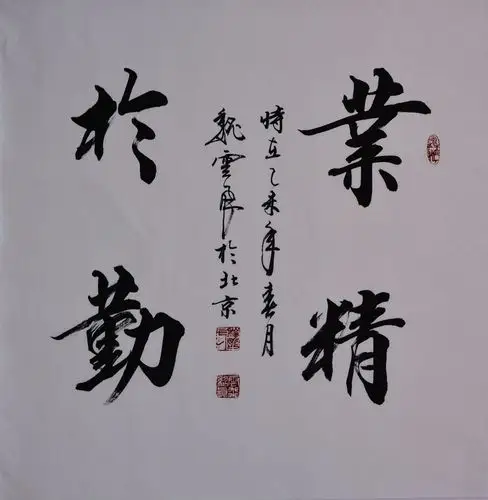 業精
於勤
時在乙未年春月
魏雲於北京